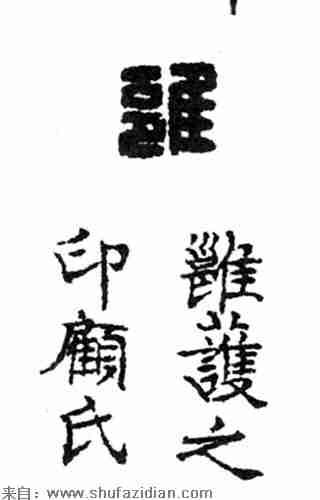 雝
雝䕶之
印顧氏
来自：www.shufazidian.com